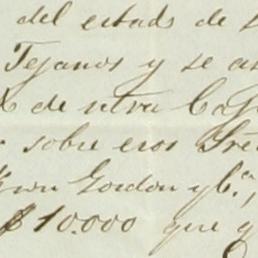 del estado de
Tejanos y se
de ntra Casa
sobre esos Sres
Gordon y Cª,
$10.000 que